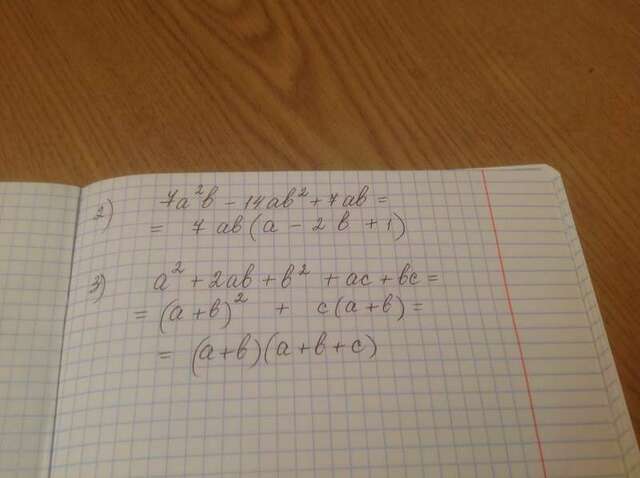 2) 7a²b - 14ab² + 7ab =
= 7ab(a - 2b + 1)
3) a² + 2ab + b² + ac + bc =
= (a+b)² + c(a+b) =
= (a+b)(a+b+c)